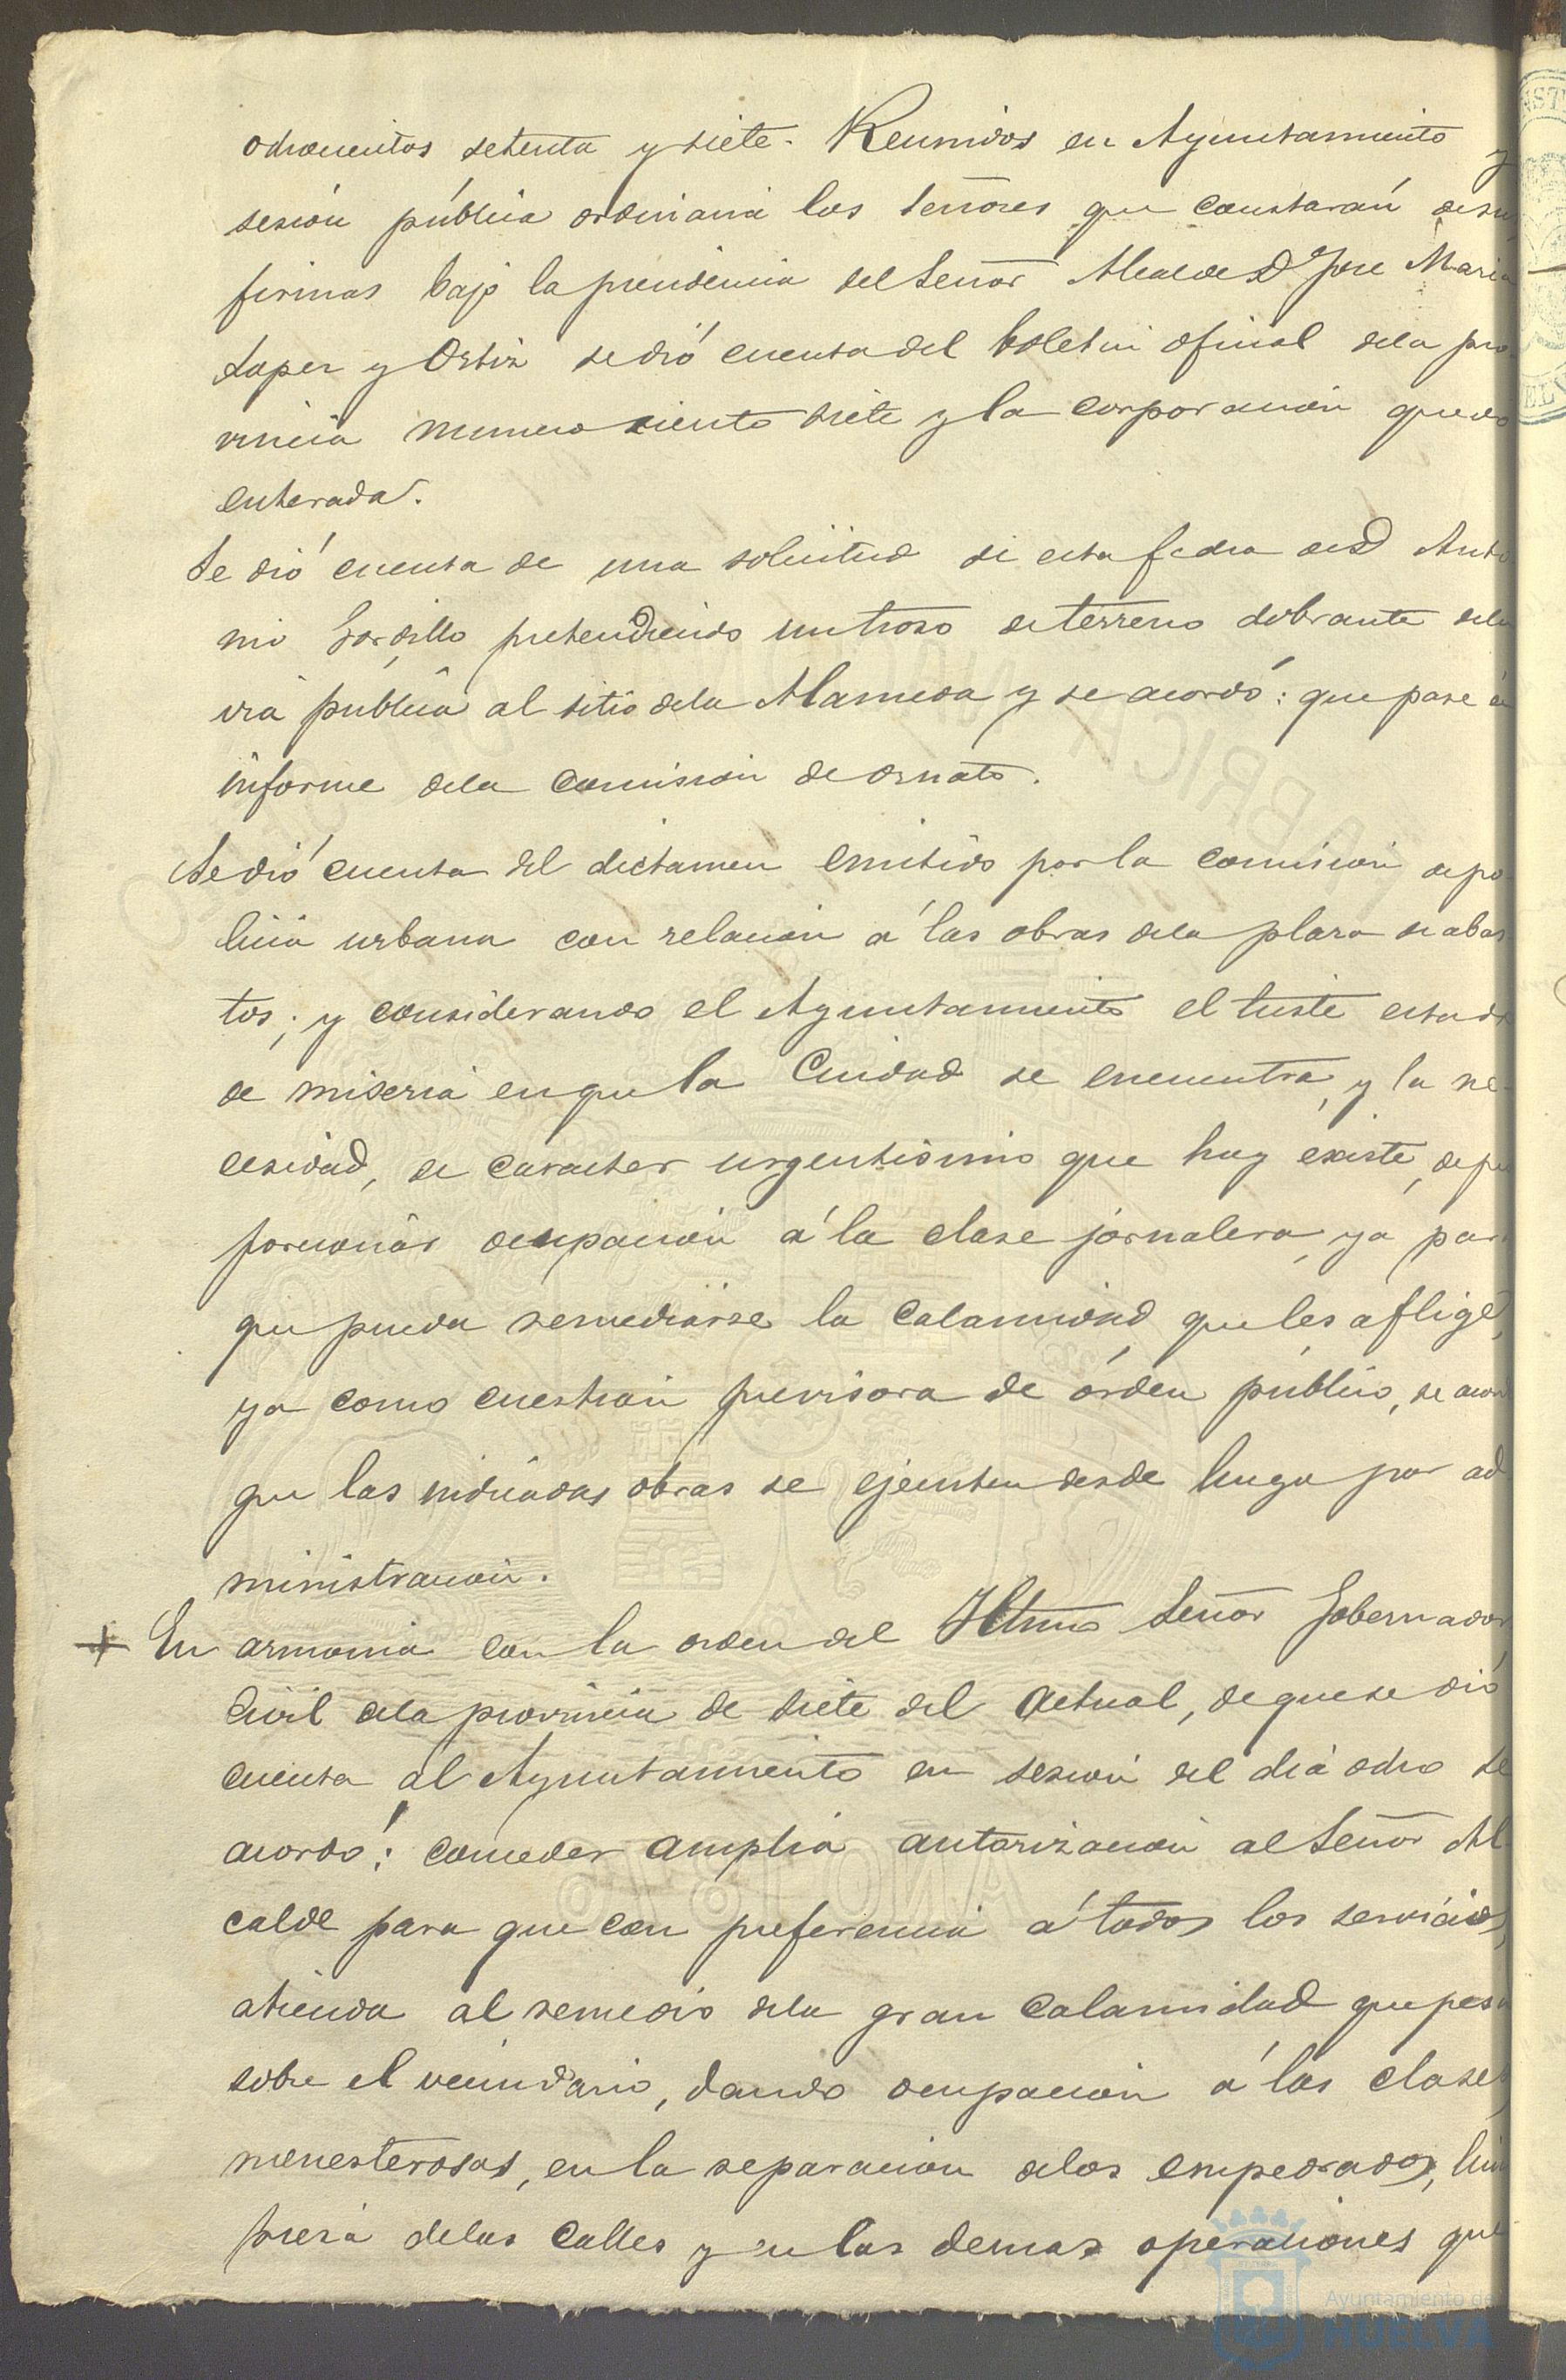 ochocientos setenta y siete. Reunidos en Ayuntamiento y
sesión pública ordinaria los señores que constarán desus
firmas bajo la presidencia del Señor Alcalde Dn Jose Maria
Lopez y Ortiz se dió cuenta del boletin oficial dela pro
vincia numero ciento siete y la corporacion quedo
enterada.
Se dió cuenta de una solicitud de esta fecha de D Anto
nio Gordillo pretendiendo un trozo de terreno sobrante dela
via pública al sitio dela Alameda y se acordó: que pase á
informe dela comision de ornato.
Se dió cuenta del dictamen emitido por la comision de po
licia urbana con relacion á las obras dela plaza de abas
tos; y considerando el Ayuntamiento el triste estado
de miseria en que la Ciudad se encuentra, y la ne
cesidad, de caracter urgentisimo que hoy existe, de pro
porcionar ocupacion á la clase jornalera, ya para
que pueda remediarse la calamidad que les aflige,
ya como cuestion previsora de órden público, se acordó
que las indicadas obras se ejecuten desde luego por ad
ministracion.
+ En armonia con la orden del Iltmo Señor Gobernador
Civil dela provincia de siete del actual, de que se dió
cuenta al Ayuntamiento en sesion del dia ocho se
acordó: conceder amplia autorizacion al Señor Al
calde para que con preferencia á todos los servicios,
atienda al remedio dela gran calamidad que pesa
sobre el vecindario, dando ocupacion á las clases
menesterosas, en la reparacion delos empedrados, lim
pieza delas calles y en las demas operaciones que
Ayuntamiento de
HUELVA